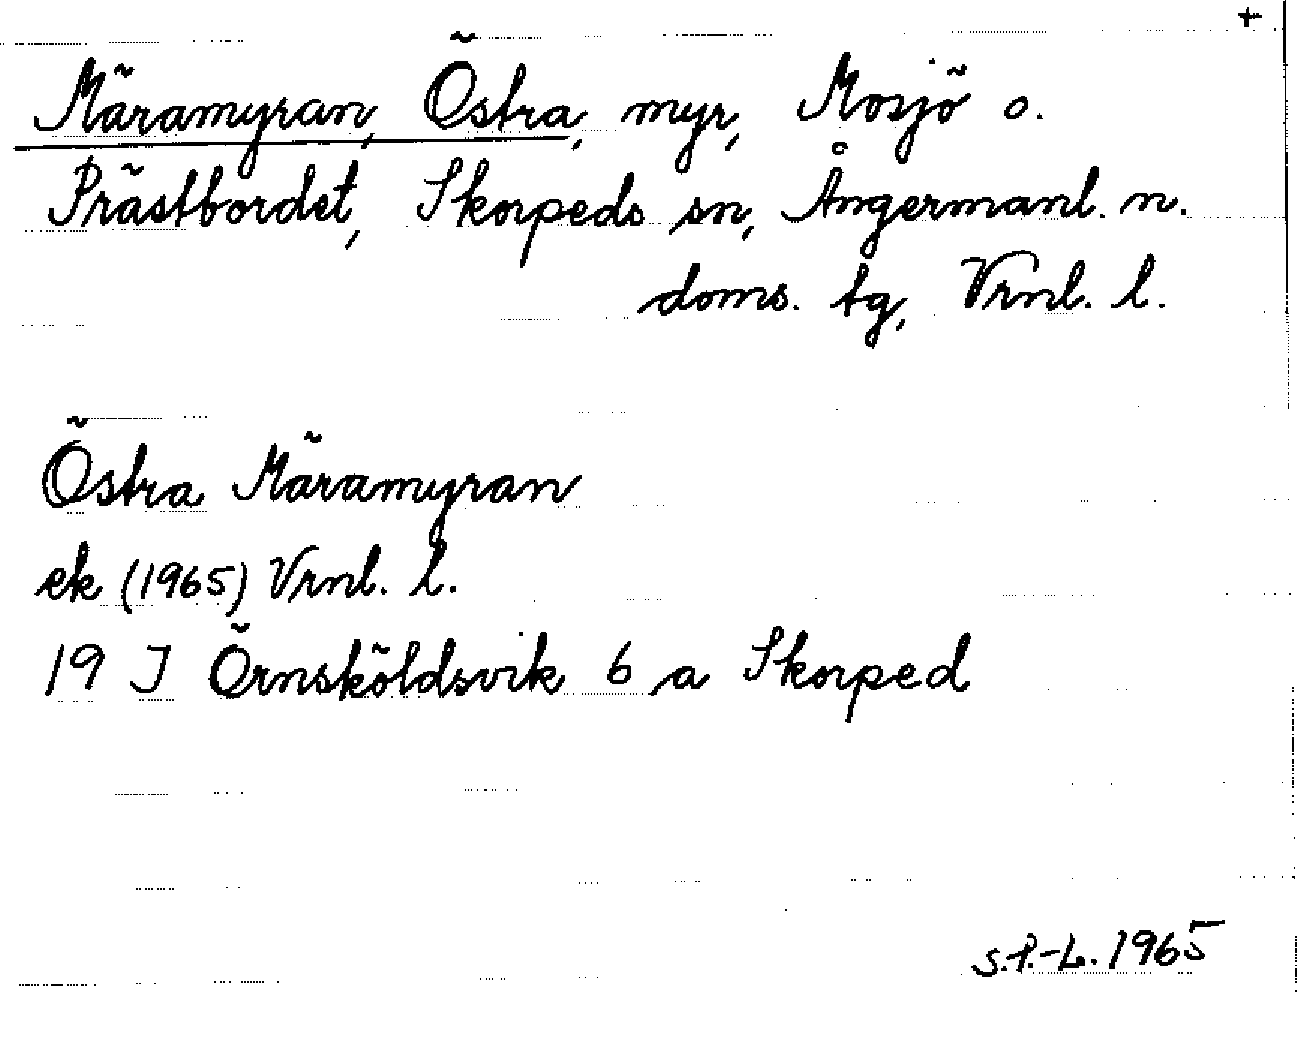 +
Märamyran, Östra, myr, Mosjö o.
Prästbordet, Skorpeds sn, Ångermanl. n.
doms. tg, Vrnl. l.
Östra Märamyran
ek (1965) Vrnl. l.
19 J Örnsköldsvik 6 a Skorped
S.P.-L. 1965